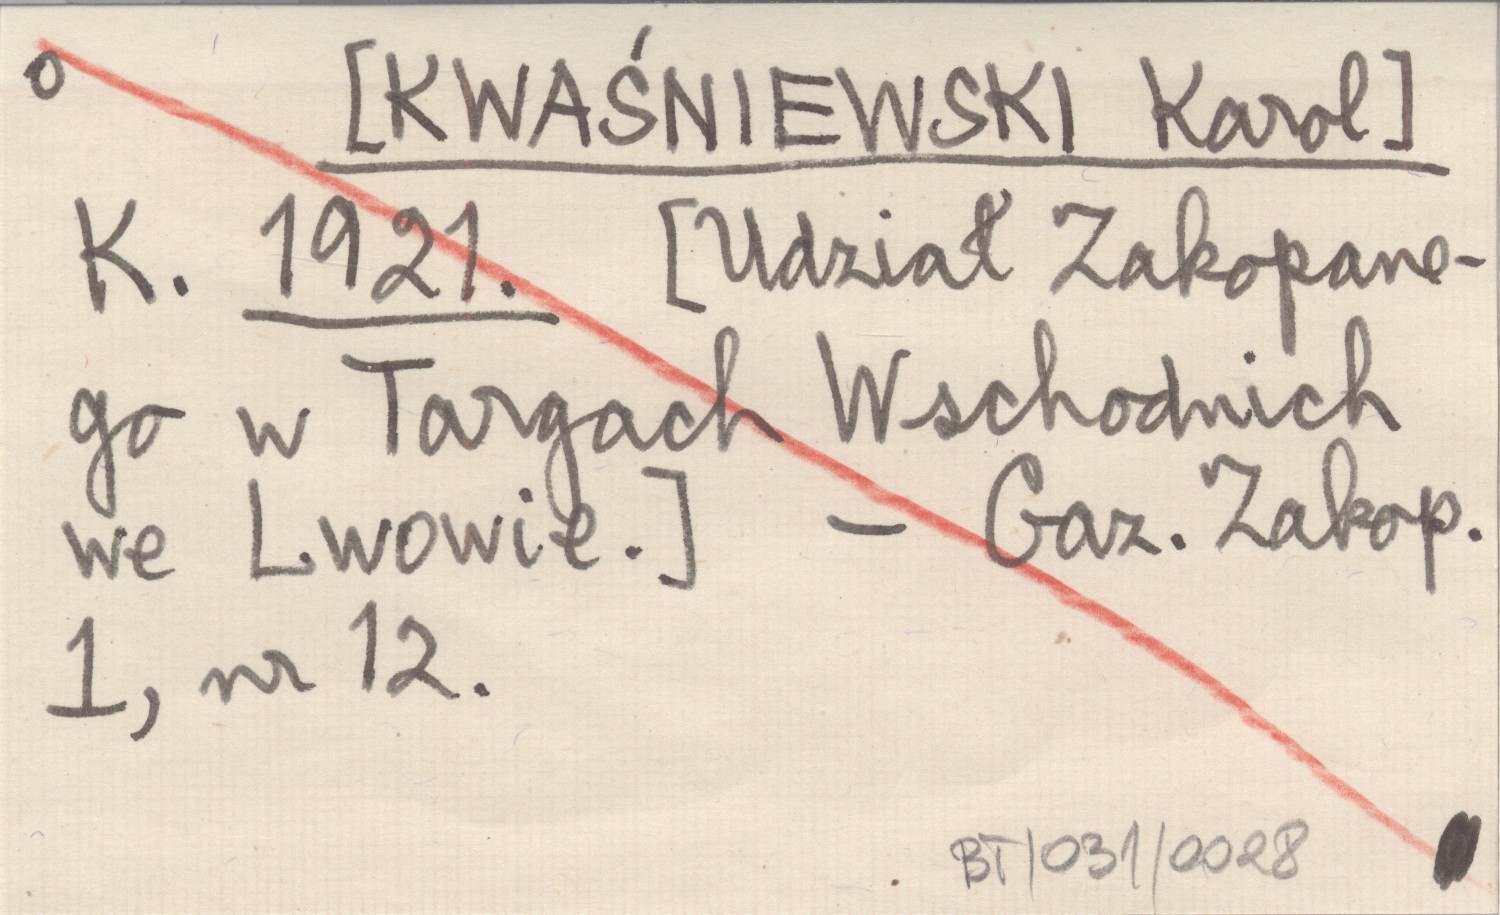 o [KWAŚNIEWSKI Karol]
K. 1921. [Udział Zakopane-
go w Targach Wschodnich
we Lwowie.] – Gaz. Zakop.
1, nr 12.
BT/031/0028